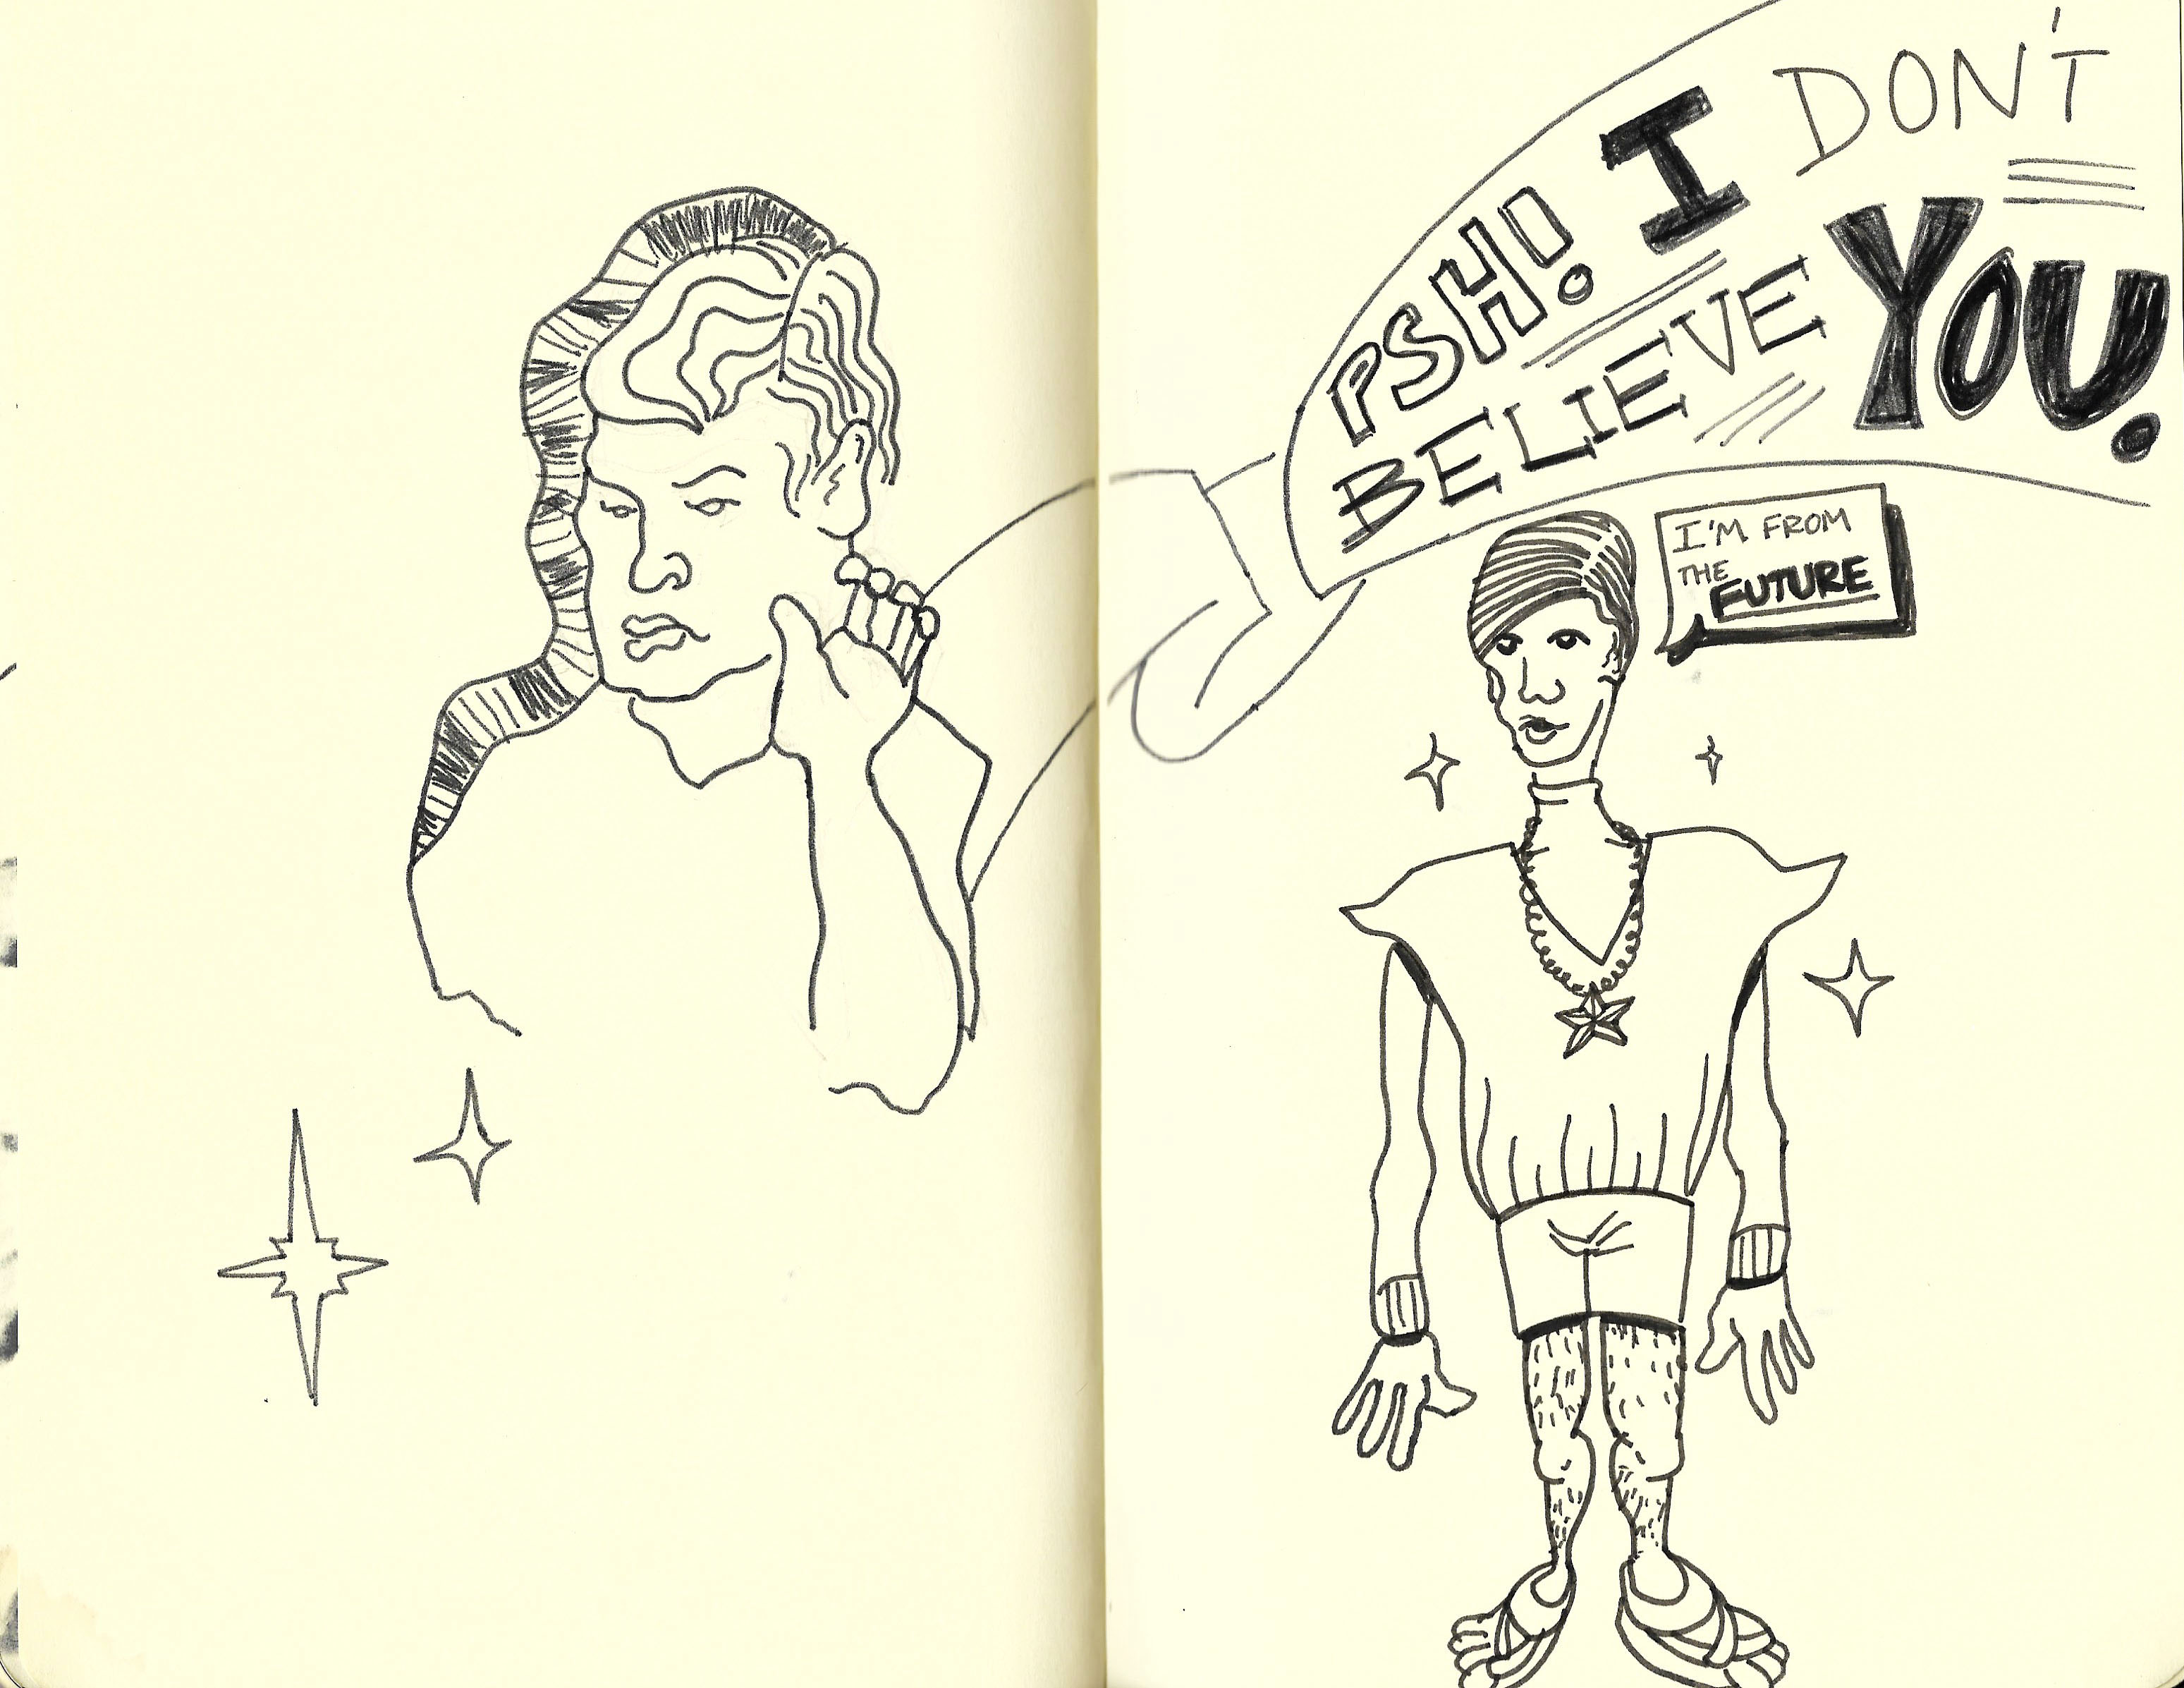 PSH! I DON'T
BELIEVE YOU.
I'M FROM
THE FUTURE